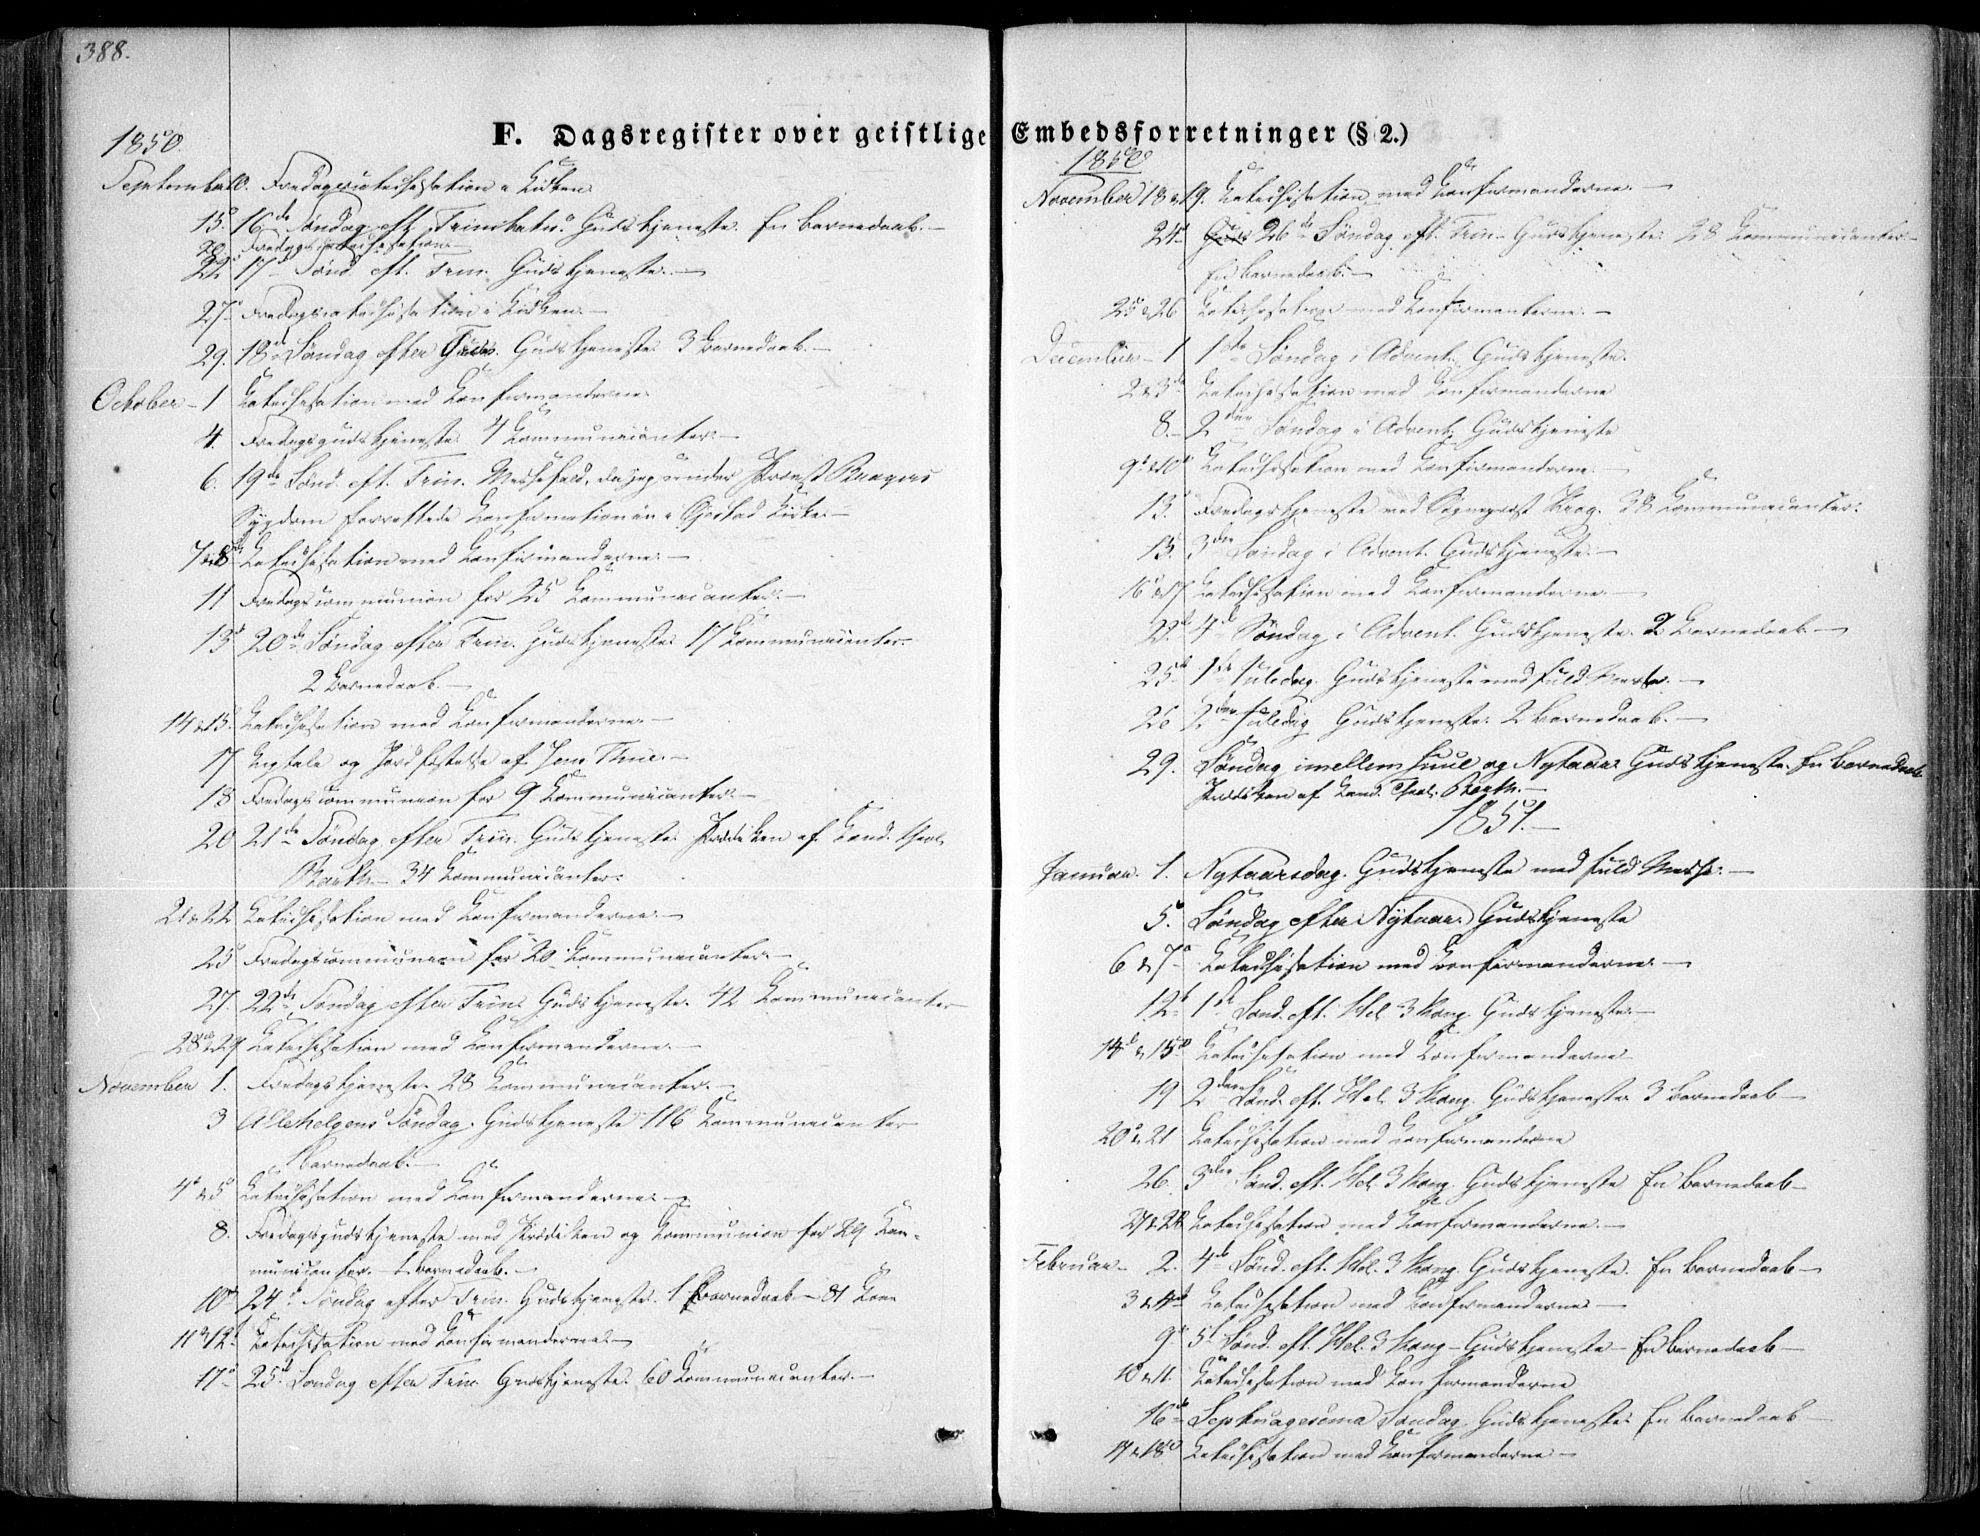 388.
F. Dagsregister over geistlige Embedsforretninger (§ 2.)
1850.
September 10. Fredagscatechisation i Kirken
15. 16de Søndag eft. Trinitatis. Gudstjeneste. En Barnedaab. —
20. Fredagscatechisation
22. 17de Sønd. eft. Trin. Gudstjeneste. —
27. Fredagscatechisation i Kirken. —
29. 18de Søndag efter Trin. Gudstjeneste 3 Barnedaab. —
October - 1 Catechisation med Konfirmanderne
4. Fredagsgudstjeneste 4 Kommunicanter —
6. 19de Sønd. eft. Trin. Messefald, da jeg under Provst
Sygdom forrettede Konfirmationen i Gjestad Kirke. —
7 & 8de Catechisation med Konfirmanderne. —
11 Fredagscommunion for 25 Kommunicanter. —
13de 20de Søndag efter Trin. Gudstjeneste 17 Kommunicanter.
2 Barnedaab. —
14 & 15. Catechisation med Konfirmanderne —
17 Ligtale og Jordfæstelse af Jens —
18 Fredagscommunion for 9 Kommunicanter —
20 21de Søndag efter Trin. Gudstjeneste Prædiken af Cand. theol.
Barth. — 34 Kommunicanter.
21 & 22 Catechisation med Konfirmanderne. —
25 Fredagscommunion for 20 Kommunicanter. —
27. 22de Søndag efter Trin. Gudstjeneste. 42 Kommunicanter
28 & 29 Catechisation med Konfirmanderne. —
November 1. Fredagstjeneste 28 Kommunicanter. —
3 Allehelgens Søndag. Gudstjeneste 116 Kommunicanter
1 Barnedaab. —
4 & 5 Catechisation med Konfirmanderne. —
8. Fredagsgudstjeneste med Prædiken og Kommunion for 29 Kom-
municanter. — 1 Barnedaab. —
10de 24de Søndag efter Trin. Gudstjeneste. 1 Barnedaab — 81 Kom
11 & 12. Catechisation med Konfirmanderne. —
17de 25de Søndag efter Trin. Gudstjeneste 60 Kommunicanter. —
1850
November 18 & 19. Catechisation med Konfirmanderne. —
24de 26de Søndag eft. Trin. Gudstjeneste 28 Kommunicanter —
En Barnedaab. —
25 & 26 Catechisation med Konfirmanterne. —
December - 1 1ste Søndag i Advent. Gudstjeneste.
2 & 3de Catechisation med Konfirmanderne
8. - 2den Søndag i Advent. Gudstjeneste
9 & 10 Catechisation med Konfirmanderne. —
13. Fredagstjeneste ved Sognepræst Krog. 38 Kommunicanter.
15. 3den Søndag i Advent. Gudstjeneste. —
16 & 17 Catechisation med Konfirmanderne —
22. 4de Søndag i Advent. Gudstjeneste. 2 Barnedaab —
25de 1ste Juledag. Gudstjeneste med fuld Messe. —
26 2den Juledag Gudstjeneste. 2 Barnedaab. —
29. Søndag imellem Juul og Nytaar. Gudstjeneste. En Barnedaab
Prædiken af Cand. Theol. Barth. —
1851. —
Januar. 1. Nytaarsdag. Gudstjeneste med fuld Messe. —
5. Søndag efter Nytaar. Gudstjeneste
6 & 7de Catechisation med Konfirmanderne —
12te 1ste Sønd. eft. Hel. 3 Kong. Gudstjeneste —
14de & 15de Catechisation med Konfirmanderne
19 2den Sønd. eft. Hel. 3 Kong. Gudstjeneste 3 Barnedaab —
20 & 21 Catechisation med Konfirmanderne
26. 3den Sønd. eft. Hel. 3 Kong. Gudstjeneste En Barnedaab —
27 & 28 Catechisation med Konfirmanderne. —
Februar - 2. 4de Sønd. eft. Hel. 3 Kong. Gudstjeneste. En Barnedaab —
3 & 4de Catechisation med Konfirmanderne —
9de 5te Sønd. eft. Hel. 3 Kong — Gudstjeneste — En Barnedaab —
10 & 11. Catechisation med Konfirmanderne
16de Septuagesima Søndag. Gudstjeneste En Barnedaab —
17 & 18. Catechisation med Konfirmanderne —